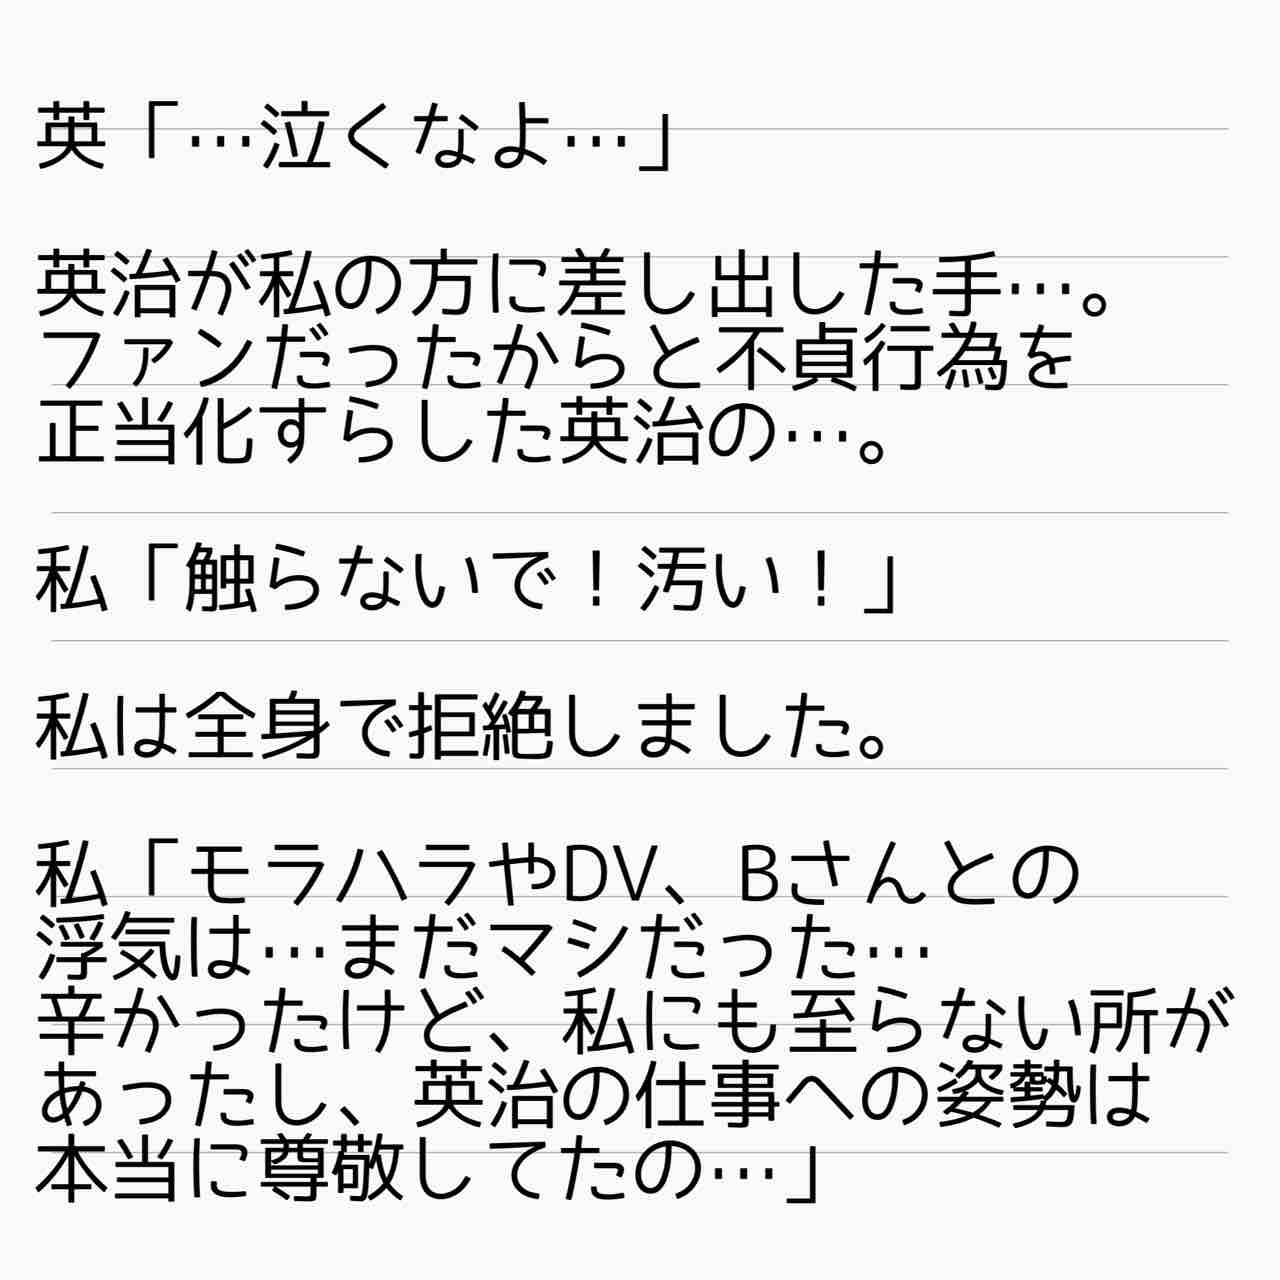 英「…泣くなよ…」
英治が私の方に差し出した手…。
ファンだったからと不貞行為を
正当化すらした英治の…。
私「触らないで！汚い！」
私は全身で拒絶しました。
私「モラハラやDV、Bさんとの
浮気は…まだマシだった…
辛かったけど、私にも至らない所が
あったし、英治の仕事への姿勢は
本当に尊敬してたの…」